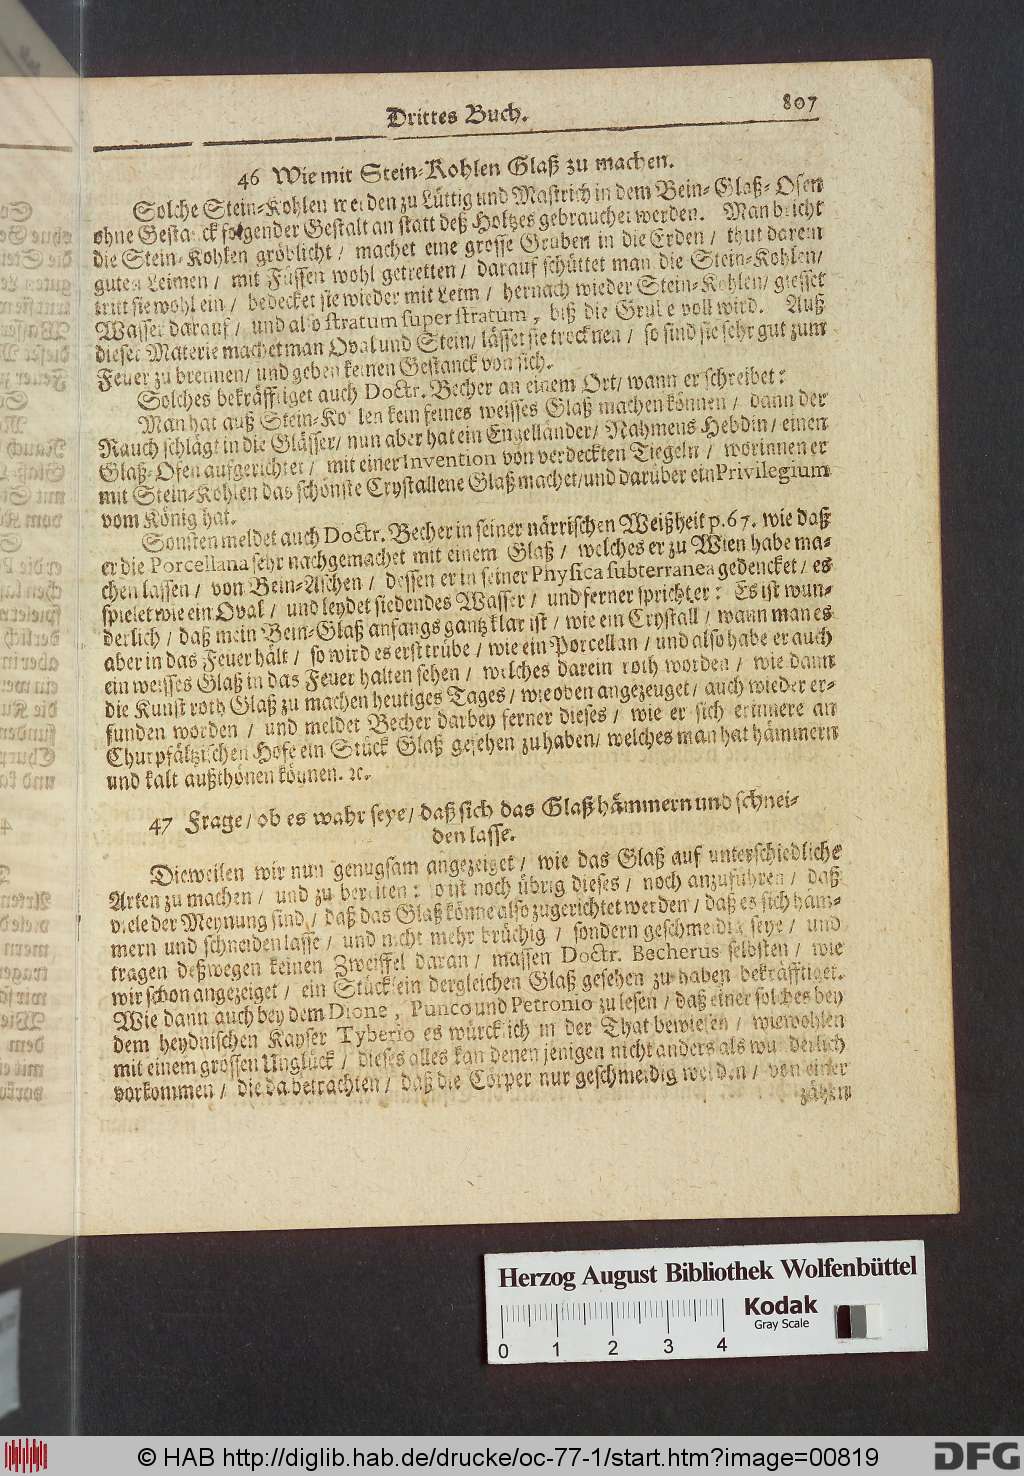 Drittes Buch. 807
46 Wie mit Stein-Kohlen Glaß zu machen.
Solche Stein-Kohlen werden zu Lüttig und Mastrich in dem Bein-Glaß-Ofen
ohne Gestanck folgender Gestalt an statt deß Holtzes gebrauchet werden. Man bricht
die Stein-Kohlen gröblicht / machet eine grosse Gruben in die Erden / thut darein
guten Leimen / mit Füssen wohl getretten / darauf schüttet man die Stein-Kohlen /
tritt sie wohl ein / bedecket sie wieder mit Leim / hernach wieder Stein-Kohlen / giesset
Wasser darauf / und also stratum super stratum, biß die Grube voll wird. Auß
dieser Materie machet man Oval und Stein / lässet sie trocknen / so sind sie sehr gut zum
Feuer zu brennen / und geben keinen Gestanck von sich.
Solches bekräfftiget auch Doctr. Becher an einem Ort / wann er schreibet:
Man hat auß Stein-Kohlen kein feines weisses Glaß machen können / dann der
Rauch schlägt in die Glässer / nun aber hat ein Engelländer / Nahmens Hebdin / einen
Glaß-Ofen aufgerichtet / mit einer Invention von verdeckten Tiegeln / worinnen er
mit Stein-Kohlen das schönste Crystallene Glaß machet / und darüber ein Privilegium
vom König hat.
Sonsten meldet auch Doctr. Becher in seiner närrischen Weißheit p. 67. wie daß
er die Porcellana sehr nachgemachet mit einem Glaß / welches er zu Wien habe ma-
chen lassen / von Bein-Aschen / dessen er in seiner Physica subterranea gedencket / es
spielet wie ein Oval / und leydet siedendes Wasser / und ferner sprichter: Es ist wun-
derlich / daß mein Bein-Glaß anfangs gantz klar ist / wie ein Crystall / wann man es
aber in das Feuer hält / so wird es erst trübe / wie ein Porcellan / und also habe er auch
ein weisses Glaß in das Feuer halten sehen / welches darein roth worden / wie dann
die Kunst roth Glaß zu machen heutiges Tages / wie oben angezeuget / auch wieder er-
funden worden / und meldet Becher darbey ferner dieses / wie er sich erinnere an
Churpfältzischen Hofe ein Stück Glaß gesehen zu haben / welches man hat hämmern
und kalt außthönen können. ꝛc.
47 Frage / ob es wahr seye / daß sich das Glaß hämmern und schnei-
den lasse.
Dieweilen wir nun genugsam angezeiget / wie das Glaß auf unterschiedliche
Arten zu machen / und zu bereiten: so ist noch übrig dieses / noch anzuführen / daß
viele der Meynung sind / daß das Glaß könne also zugerichtet werden / daß es sich häm-
mern und schneiden lasse / und nicht mehr brüchig / sondern geschmeidig seye / und
tragen deßwegen keinen Zweiffel daran / massen Doctr. Becherus selbsten / wie
wir schon angezeiget / ein Stücklein dergleichen Glaß gesehen zu haben bekräfftiget.
Wie dann auch bey dem Dione, Punco und Petronio zu lesen / daß einer solches bey
dem heydnischen Kayser Tyberio es würcklich in der That bewiesen / wiewohlen
mit einem grossen Unglück / dieses alles kan denen jenigen nicht anders als wunderlich
vorkommen / die da betrachten / daß die Cörper nur geschmeidig werden / von einer
zähen
Herzog August Bibliothek Wolfenbüttel
Kodak
Gray Scale
0 1 2 3 4
© HAB http://diglib.hab.de/drucke/oc-77-1/start.htm?image=00819
DFG